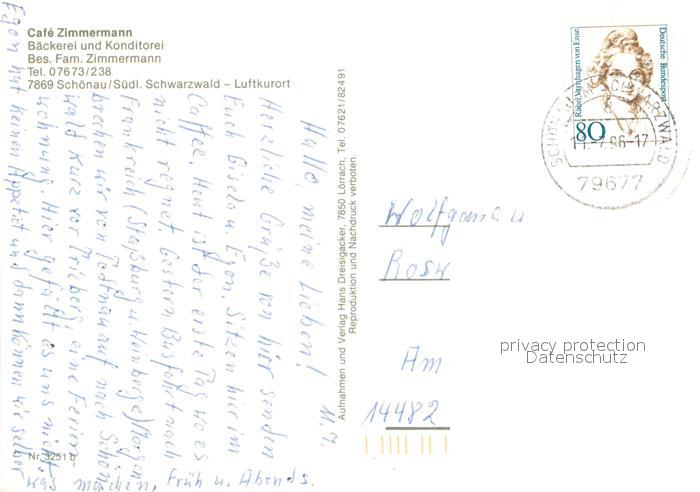 Café Zimmermann
Bäckerei und Konditorei
Bes. Fam. Zimmermann
Tel. 07673/238
7869 Schönau/Südl. Schwarzwald – Luftkurort
Hallo, meine Lieben!
Herzliche Grüße von hier senden
Euch Gisela u. Egon. Sitzen hier im
Caffee. Heut ist der erste Tag wo es
nicht regnet. Gestern Busfahrt nach
Frankreich (Staßburg u. Weinberge) Morgen
brechen wir von Todtnau auf nach Schön
wald kurz vor Trieberg, eine Ferien
wohnung. Hier gefällt es uns nicht
Egon hat keinen Appetit und dann können wir selber
was machen, Früh u. Abends.
Nr. 3251 b
Aufnahmen und Verlag Hans Dreisigacker, 7850 Lörrach, Tel. 07621/82491
Reproduktion und Nachdruck verboten.
Rahel Varnhagen von Ense
Deutsche Bundespost
80
79677
Wolfgang u
Rosw
Am
14482
privacy protection
Datenschutz